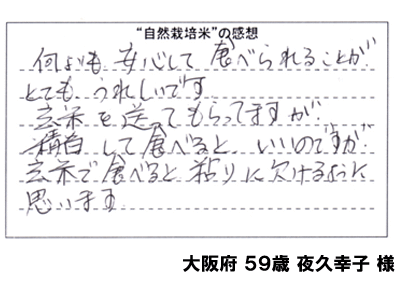 “自然栽培米”の感想
何よりも 安心して 食べられることが
とても うれしいです
玄米を送ってもらってますが
精白して食べると いいのですが
玄米で食べると粘りに欠けるように
思います
大阪府 59歳 夜久幸子 様